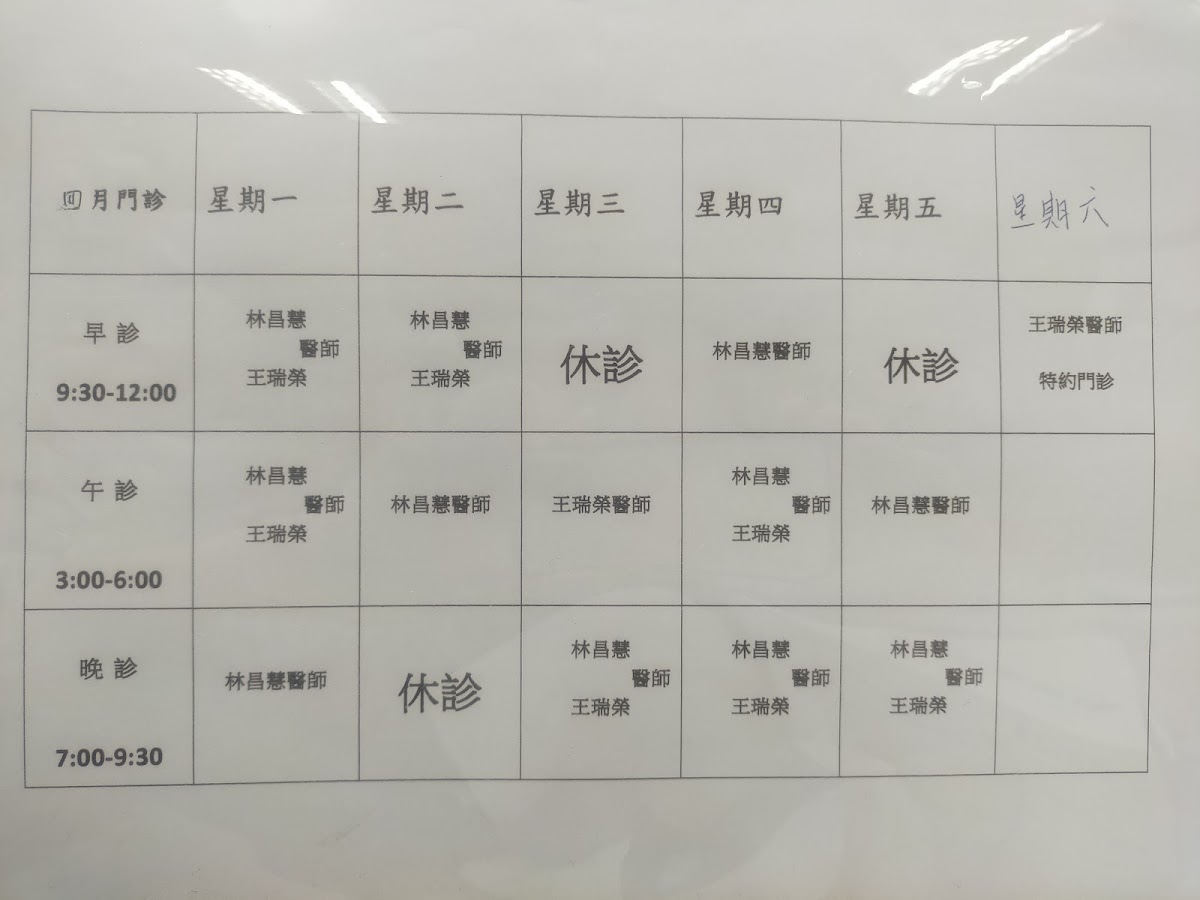 四月門診
星期一
星期二
星期三
星期四
星期五
星期六
早 診
9:30-12:00
林昌慧
醫師
王瑞榮
林昌慧
醫師
王瑞榮
休診
林昌慧醫師
休診
王瑞榮醫師
特約門診
午 診
3:00-6:00
林昌慧
醫師
王瑞榮
林昌慧醫師
王瑞榮醫師
林昌慧
醫師
王瑞榮
林昌慧醫師
晚 診
7:00-9:30
林昌慧醫師
休診
林昌慧
醫師
王瑞榮
林昌慧
醫師
王瑞榮
林昌慧
醫師
王瑞榮